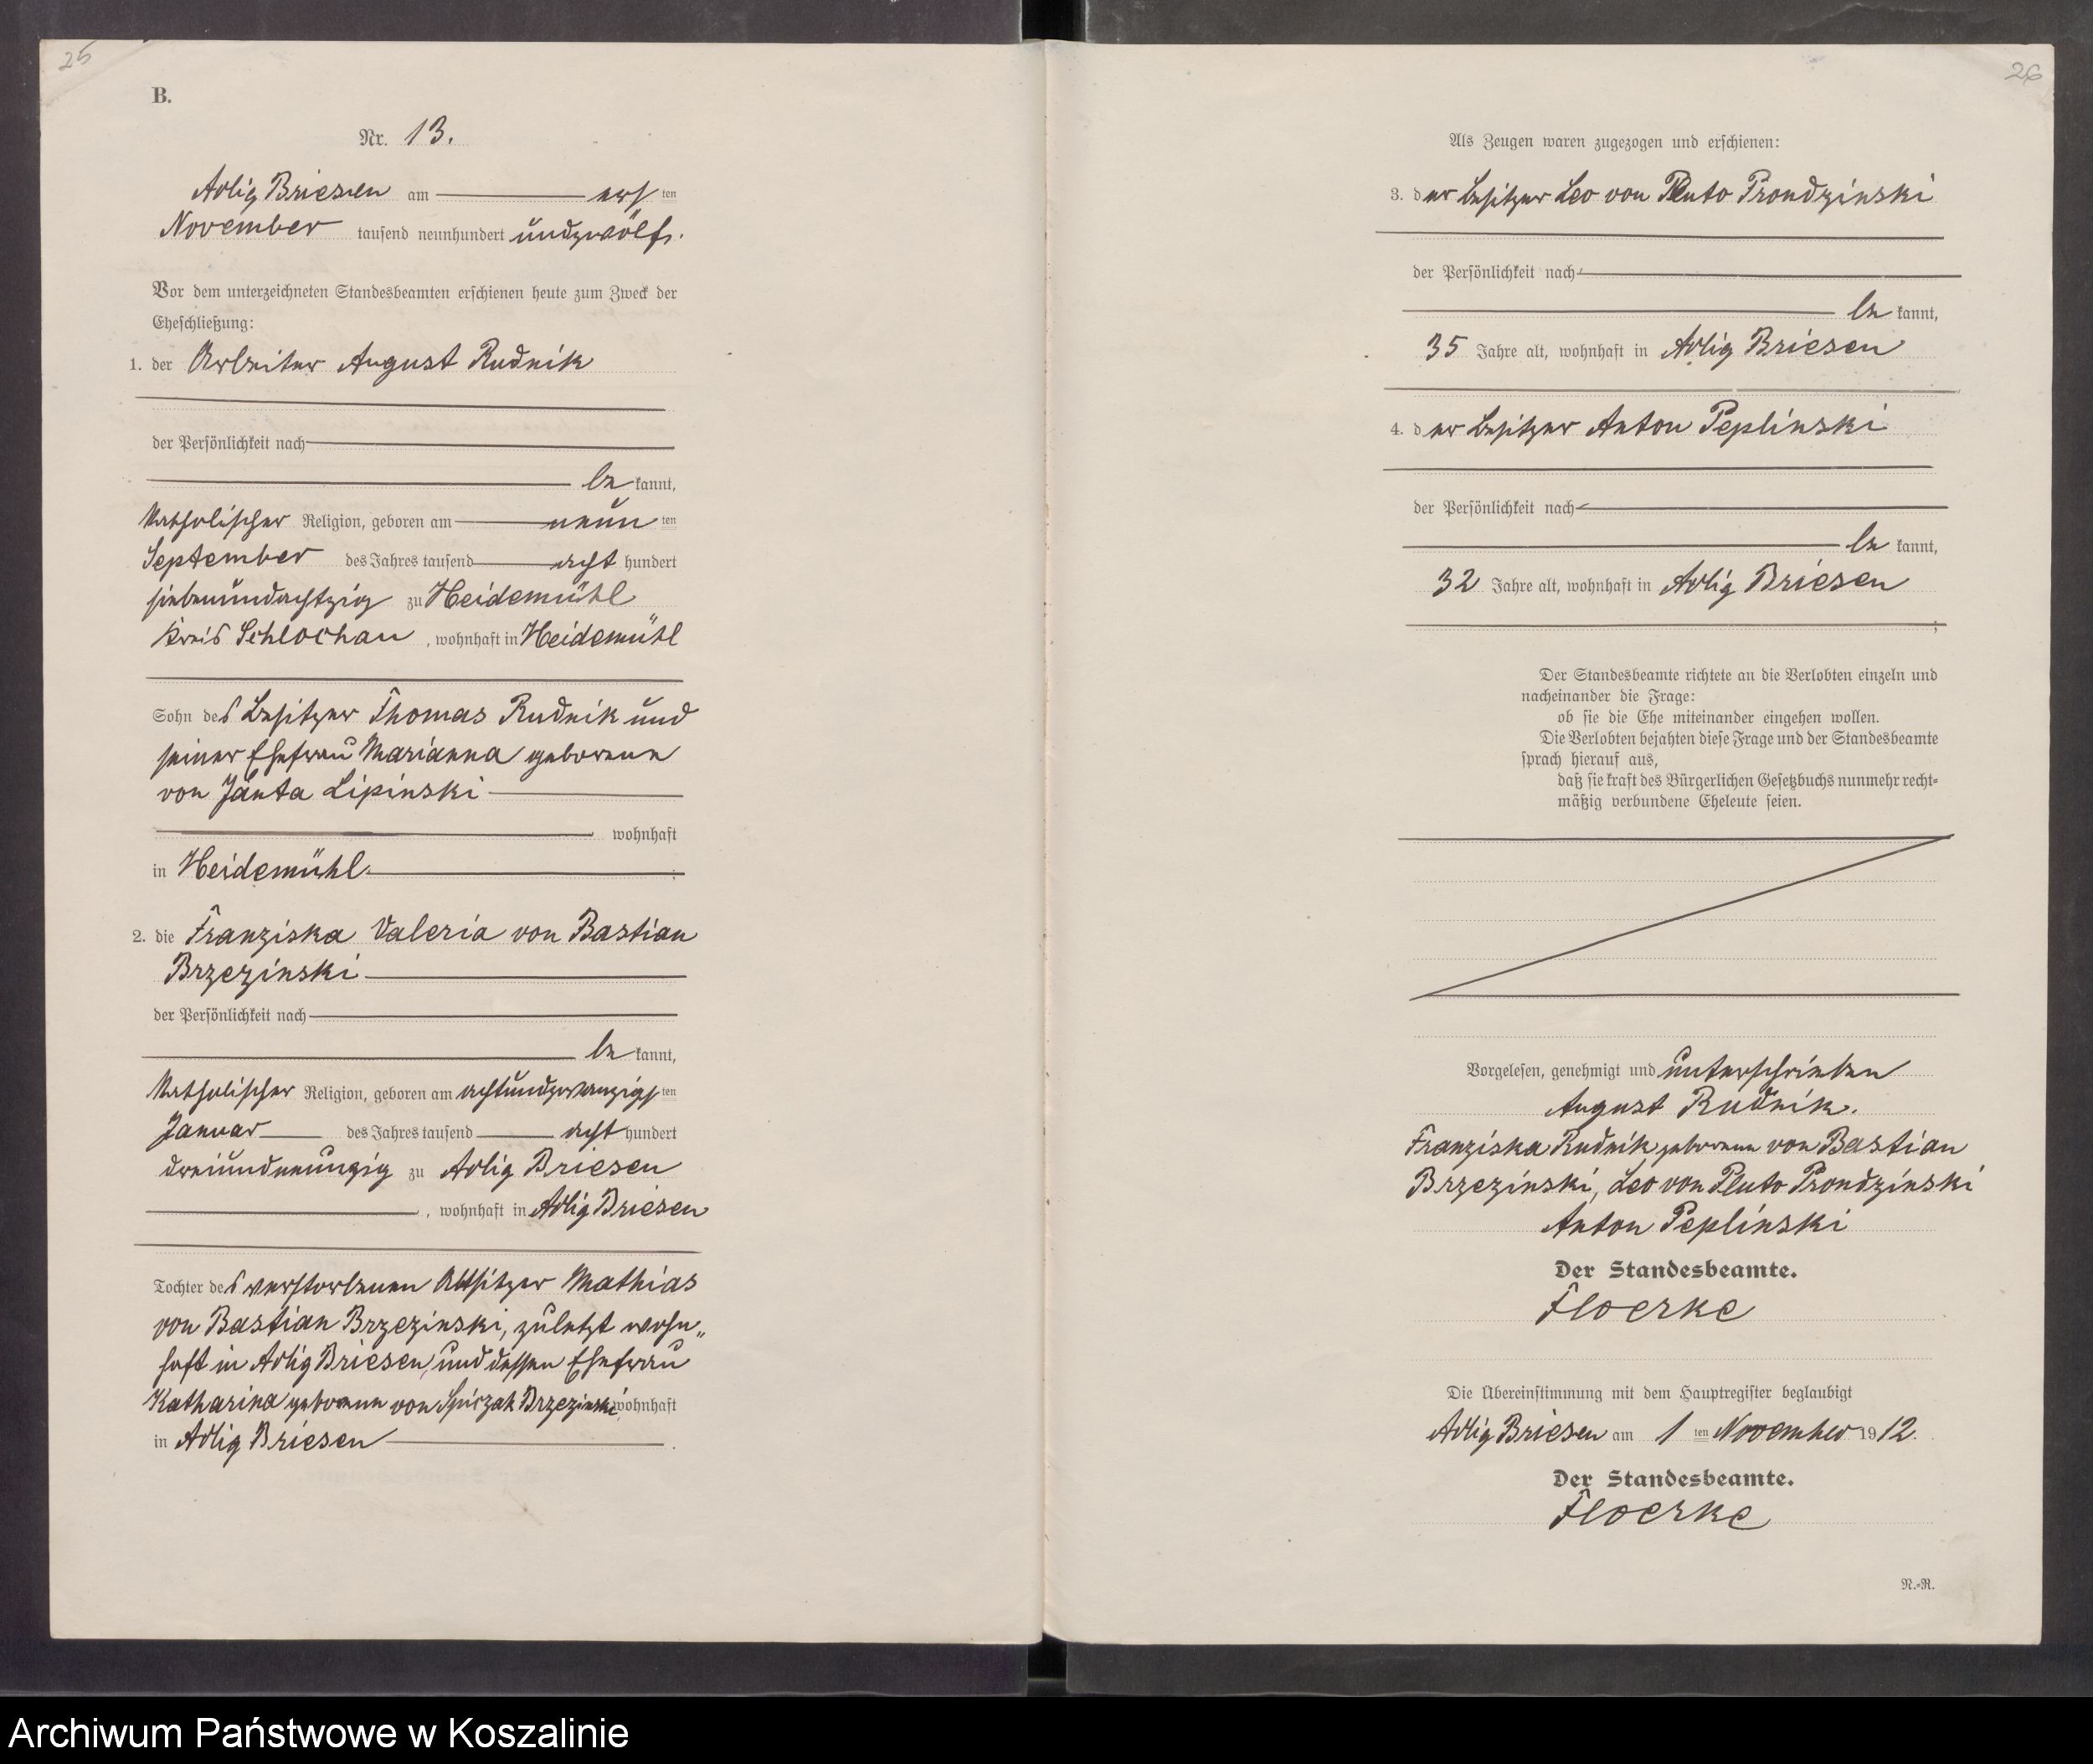 25
B.
Nr. 13.
Adlig Briesen am ersten
November tausend neunhundert undzwölf.
Vor dem unterzeichneten Standesbeamten erschienen heute zum Zweck der
Eheschließung:
1. der Arbeiter August Rudnik
der Persönlichkeit nach
bekannt,
katholischer Religion, geboren am neunten
September des Jahres tausend acht hundert
siebenundachtzig zu Heidemühl
Kreis Schlochau, wohnhaft in Heidemühl
Sohn des Besitzer Thomas Rudnik und
seiner Ehefrau Marianna geborene
von Janta Lipinski
wohnhaft
in Heidemühl ;
2. die Franziska Valeria von Bastian
Brzezinski
der Persönlichkeit nach
bekannt,
katholischer Religion, geboren am achtundzwanzigsten
Januar des Jahres tausend acht hundert
dreiundneunzig zu Adlig Briesen
, wohnhaft in Adlig Briesen
Tochter des verstorbenen Altsitzer Mathias
von Bastian Brzezinski, zuletzt wohn„
haft in Adlig Briesen, und dessen Ehefrau
Katharina geborene von Spiczak Brzezinski, wohnhaft
in Adlig Briesen .
26
Als Zeugen waren zugezogen und erschienen:
3. der Besitzer Leo von Pluto Prondzinski
der Persönlichkeit nach
bekannt,
35 Jahre alt, wohnhaft in Adlig Briesen
4. der Besitzer Anton Peplinski
der Persönlichkeit nach
bekannt,
32 Jahre alt, wohnhaft in Adlig Briesen
;
Der Standesbeamte richtete an die Verlobten einzeln und
nacheinander die Frage:
ob sie die Ehe miteinander eingehen wollen.
Die Verlobten bejahten diese Frage und der Standesbeamte
sprach hierauf aus,
daß sie kraft des Bürgerlichen Gesetzbuchs nunmehr recht-
mäßig verbundene Eheleute seien.
Vorgelesen, genehmigt und unterschrieben
August Rudnik.
Franziska Rudnik geborene von Bastian
Brzezinski, Leo von Pluto Prondzinski
Anton Peplinski
Der Standesbeamte.
Floerke
Die Übereinstimmung mit dem Hauptregister beglaubigt
Adlig Briesen am 1 ten November 1912.
Der Standesbeamte.
Floerke
N.-R.
Archiwum Państwowe w Koszalinie